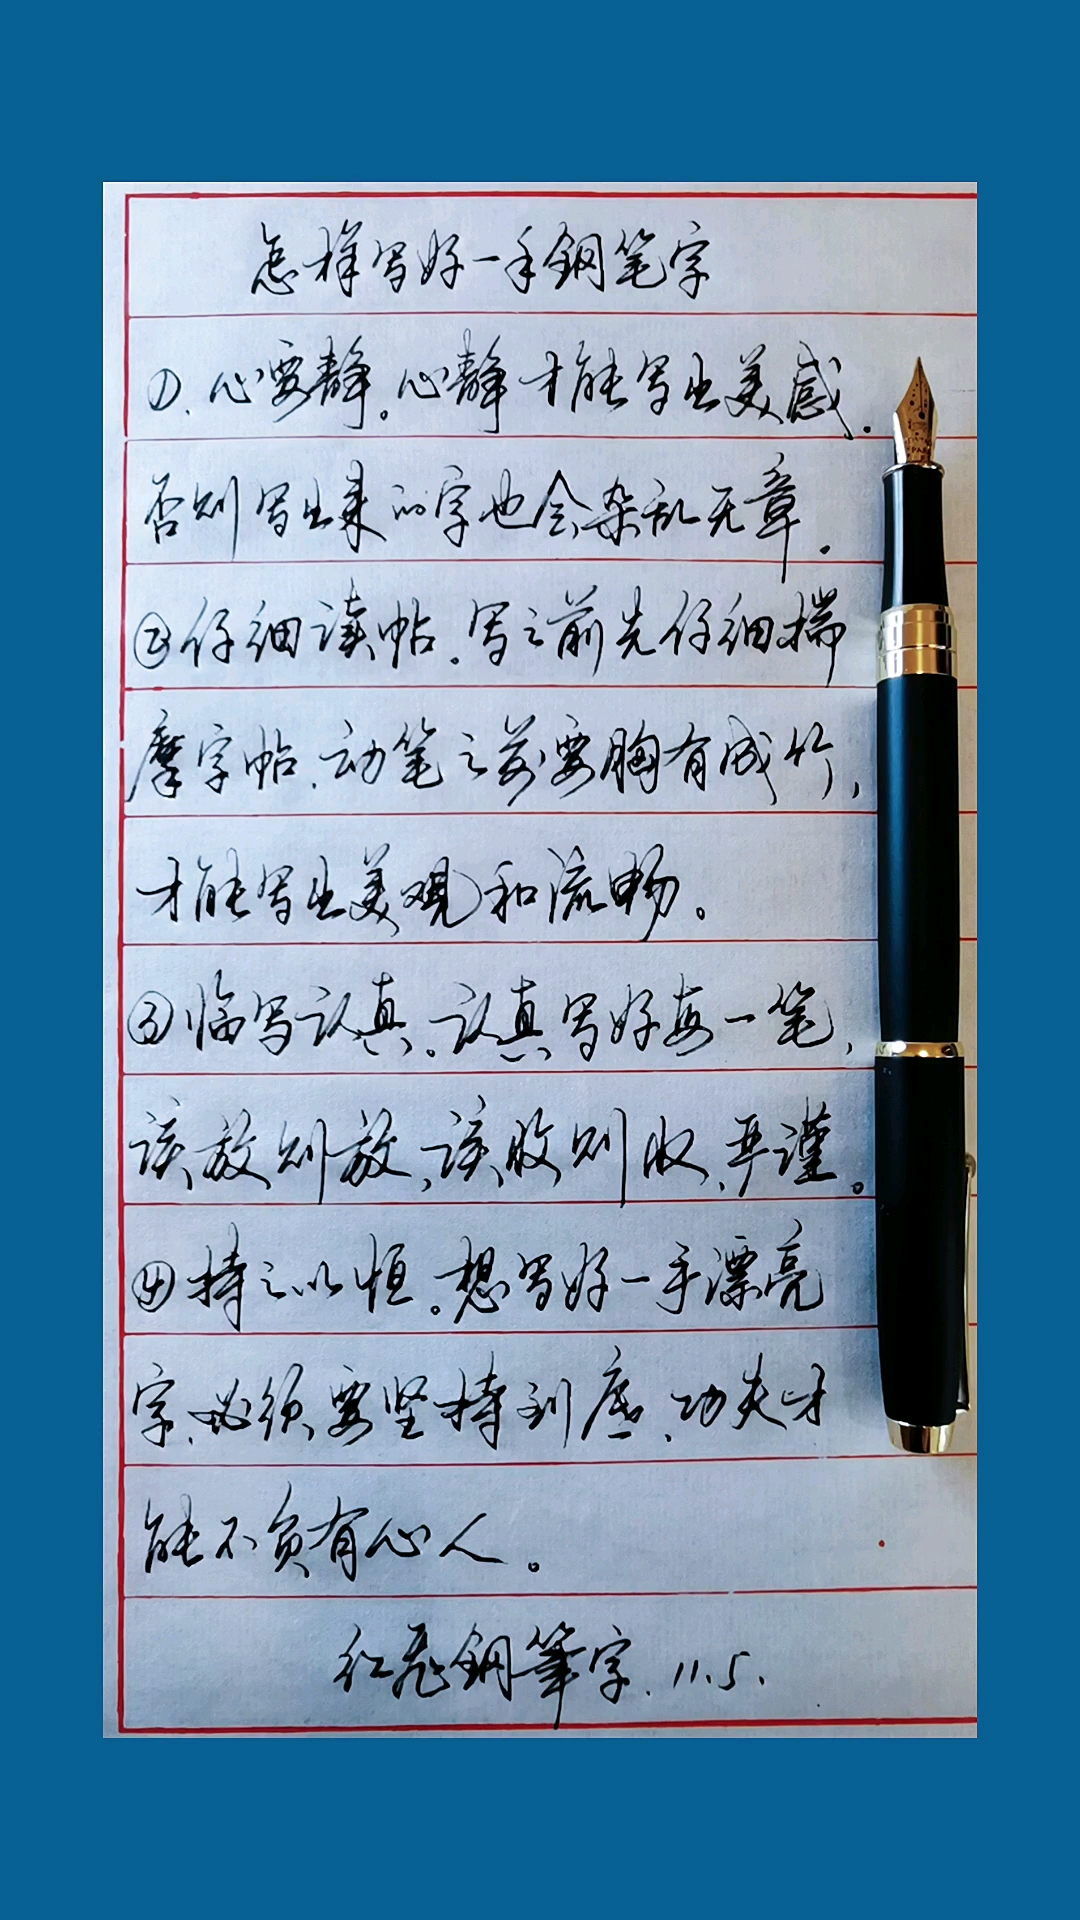 怎样写好一手钢笔字
①.心要静。心静才能写出美感.
否则写出来的字也会杂乱无章.
②仔细读帖.写之前先仔细揣
摩字帖.动笔之前要胸有成竹,
才能写出美观和流畅。
③临写认真。认真写好每一笔,
该放则放,该收则收,严谨。
④持之以恒。想写好一手漂亮
字,必须要坚持到底,功夫才
能不负有心人。
红飞钢筆字.11.5.